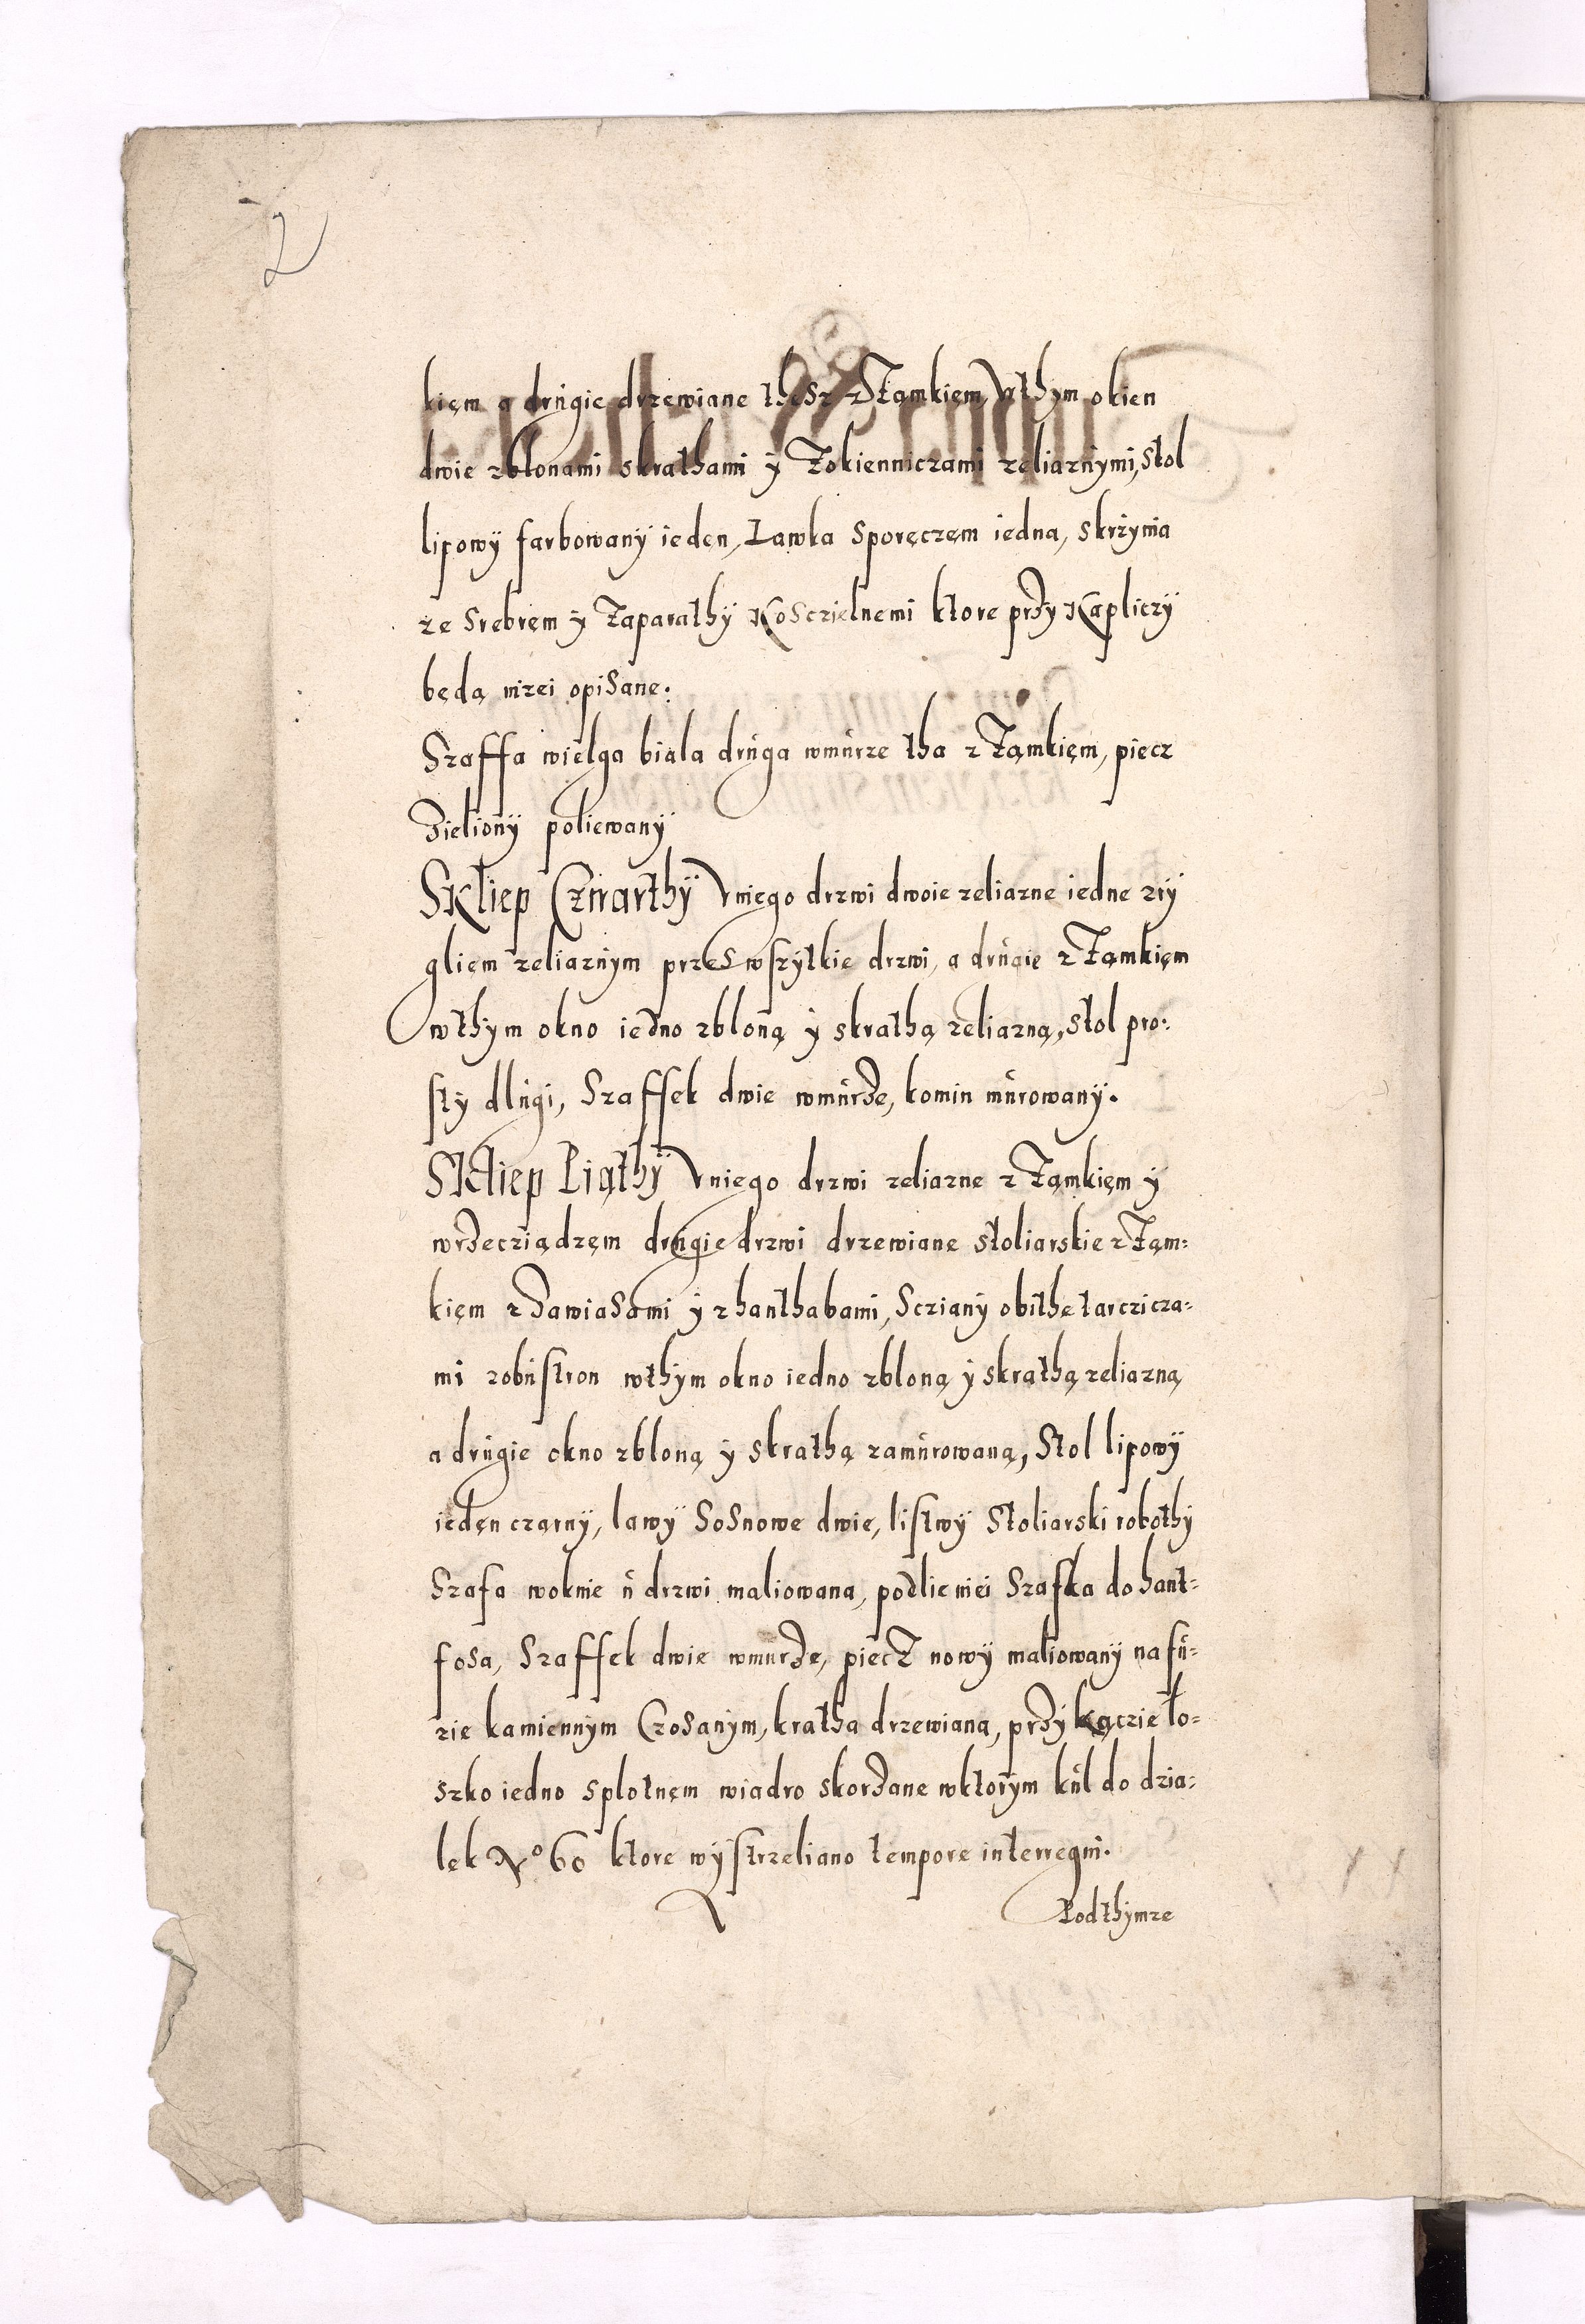 2
kięm a drůgie drzewiane thesz z Zamkięm, wthym okien
dwie zblonami skrathami ÿ Zokienniczami zeliaznÿmi, stol
lipowÿ farbowanÿ ieden, Lawka sporęczęm iedna, skrzÿnia
ze srebręm ÿ Zaparathÿ Kosczielnemi ktore przÿ Kapliczÿ
będą nizei opisane.
Szaffa wielga biala drůga wmůrze tha z Zamkięm, piecz
Zielionÿ poliewanÿ
Skliep Czwarthÿ Vniego drzwi dwoie zeliazne iedne zrÿ
glięm zeliaznÿm przes wszÿtkie drzwi, a drůgie z Zamkięm
wthÿm okno iedno zbloną ÿ skrathą zeliazną, stol pro:
stÿ dlůgi, Szaffek dwie wmůrze, komin můrowanÿ.
Skliep Piąthÿ Vniego drzwi zeliazne z Zamkięm ÿ
wrzecziądzęm drůgie drzwi drzewiane stoliarskie z Zam:
kięm z Zawiasami ÿ zhanthabami, Sczianÿ obithe tarczicza:
mi zobůstron wthÿm okno iedno zbloną ÿ skrathą zeliazną
a drůgie okno zbloną ÿ skrathą zamůrowaną, Stol lipowÿ
ieden czarnÿ, lawÿ Sosnowe dwie, listwÿ Stoliarski robothÿ
Szafa woknie ů drzwi maliowana, podlie niei Szafka do hant:
fosa, Szaffek dwie wmůrze, piecz nowÿ maliowanÿ na fů:
zie kamiennÿm Czosanÿm, kratha drzewiana, przÿ kączie lo:
szko iedno splotnęm wiadro skorzane wktorÿm kůl do dzia:
lek No 60 ktore wÿstrzeliano tempore interregni.
Podthÿmze